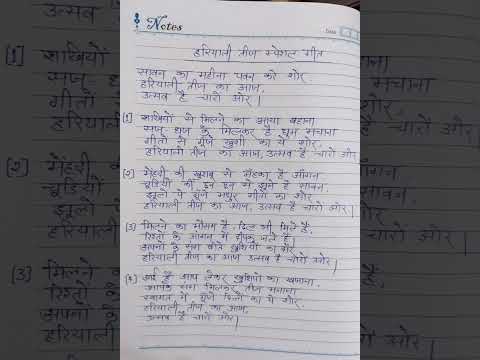 Notes
Date
हरियाली तीज स्पेशल गीत
सावन का महीना पवन करे शोर
हरियाली तीज का आज,
उत्सव है चारो ओर |
[1] सखियों से मिलने का आया बहाना
सज धज के मिलकर है धूम मचाना
गीतों से गूँजे खुशी का ये शोर,
हरियाली तीज का आज, उत्सव है चारो ओर
[2] मेंहदी की खुशबू से मेहका है आँगन
चूड़ियों की छन छन से झूमे है सावन,
झूलो में गूंजे मधुर गीतों का शोर
हरियाली तीज का आज उत्सव है चारो ओर |
[3] मिलने का मौसम है, दिल भी मिले हैं,
रिश्तों के आँगन में दीपक जले हैं |
अपनों के संग खुशियों का शोर
हरियाली तीज का आज उत्सव है चारो ओर |
[4] आई है आप लेकर खुशियों का खजाना,
आपके संग मिलकर तीज मनाना
स्वागत में गूँजे दिलों का ये शोर
हरियाली तीज का आज,
उत्सव है चारो ओर |